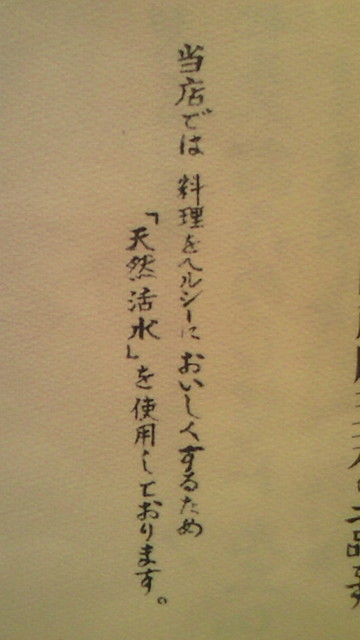 当店では 料理をヘルシーに おいしくするため
「天然活水」を使用しております。